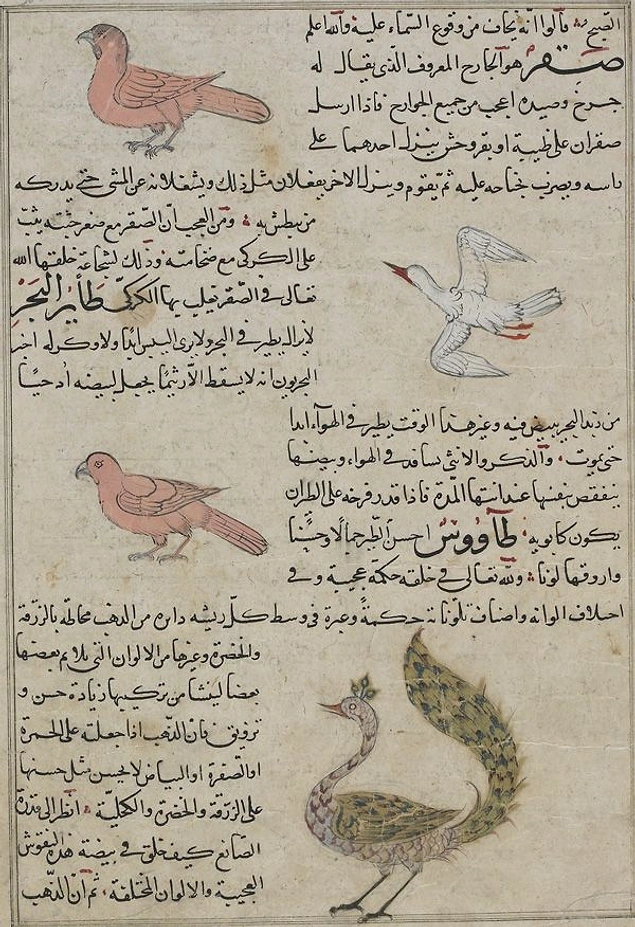 الصبح قالوا انه يخاف من وقوع السماء عليه والله اعلم
صقر هو الجارح المعروف الذى يقال له
جرخ وصيده اعجب من جميع الجوارح فاذا ارسل
صقران على ظبية او بقر وحش ينزل احدهما على
راسه ويضرب بجناحه عليه ثم يقوم وينزل الاخر يفعلان مثل ذلك ويشغلانه عن المشى حتى يدركه
من يبطش به ومن العجب ان الصقر مع صغر جثته يثب
على الكركى مع ضخامته وذلك لشجاعة خلقها الله
تعالى فى الصقر فيغلب بها الكركى طائر البحر
لا يزال يطير فى البحر ولا يرى اليبس ابدا ولا وكر له اخبر
البحريون انه لا يسقط الا ريثما يجعل لبيضه ادحيا
من زبد البحر يبيض فيه وغير هذا الوقت يطير فى الهواء ابدا
حتى يموت والذكر والانثى يتسافد فى الهواء وبيضها
يتفقص بنفسها عند انتهاء المدة فاذا قدر فرخه على الطيران
يكون كابويه طاووس احسن الطير جمالا وحسنا
واروقها لونا ولله تعالى فى خلقه حكمة عجيبة وفى
اختلاف الوانه واصناف تلوناته حكمة وعبرة فى وسط كل ريشه دايرة من الذهب مخالطة بالزرقة
والخضرة وغيرها من الالوان التى يلايم بعضها
بعضا لينشا من تركيبها زيادة حسن و
ترويق فان الذهب اذا جعلته على الحمرة
او الصفرة او البياض لا يحسن مثل حسنها
على الزرقة والخضرة والكحلية انظر الى قدرة
الصانع كيف خلق فى بيضة هذه النقوش
العجيبة والالوان المختلفة ثم ان الذهب